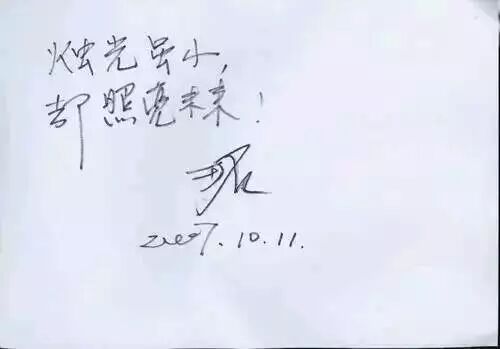 烛光虽小,
却照亮未来!
2007.10.11.